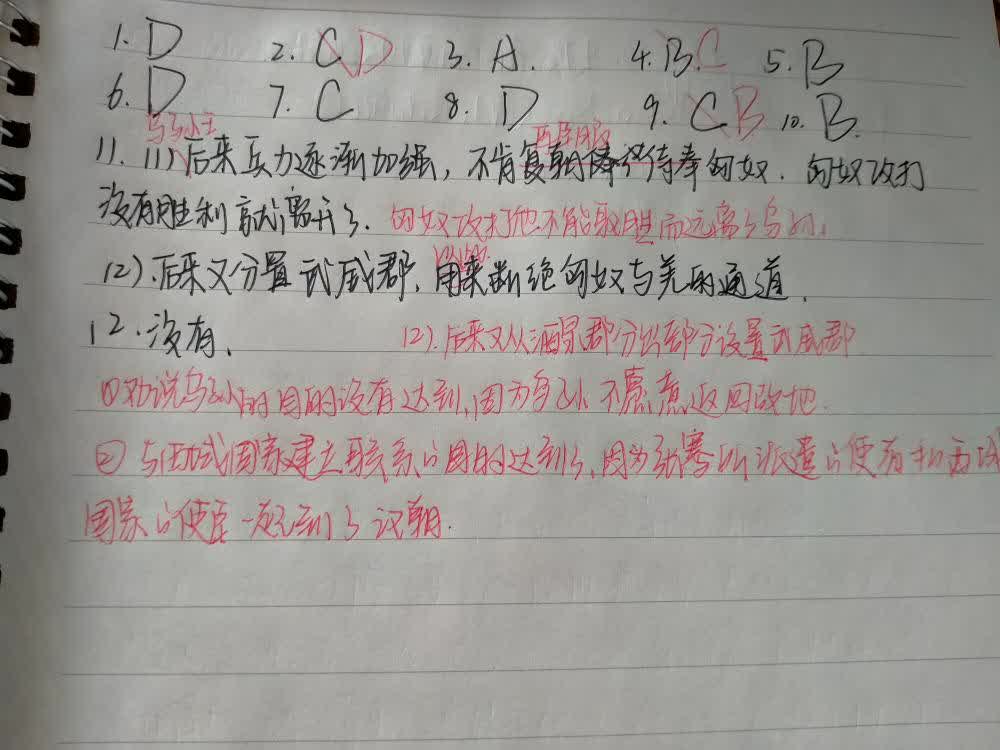 1. D 2. C D 3. A. 4. B. C 5. B
6. D 7. C 8. D 9. C B 10. B.
乌孙王 再臣服
11. (1)后来兵力逐渐加强，不肯复朝侍奉匈奴．匈奴攻打
没有胜利就离开了．匈奴攻打他不能取胜而远离了乌孙．
(2).后来又分置武威郡，用来断绝匈奴与羌的通道．
12.没有． (2).后来又从酒泉郡分出部分设置武威郡
①劝说乌孙的目的没有达到，因为乌孙不愿意返回故地．
②与西域国家建立联系的目的达到了，因为张骞所派遣的使者和西域
国家的使臣一起到了汉朝．